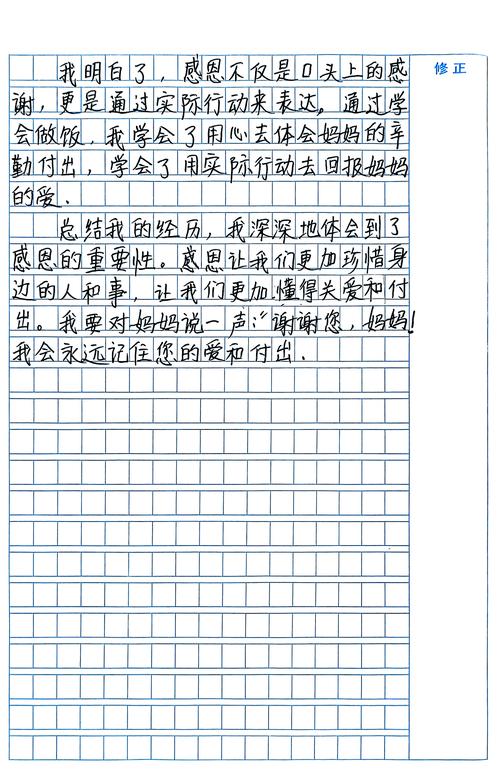 修正
我明白了，感恩不仅是口头上的感
谢，更是通过实际行动来表达。通过学
会做饭，我学会了用心去体会妈妈的辛
勤付出，学会了用实际行动去回报妈妈
的爱.
总结我的经历，我深深地体会到了
感恩的重要性。感恩让我们更加珍惜身
边的人和事，让我们更加懂得关爱和付
出。我要对妈妈说一声：“谢谢您，妈妈！
我会永远记住您的爱和付出.